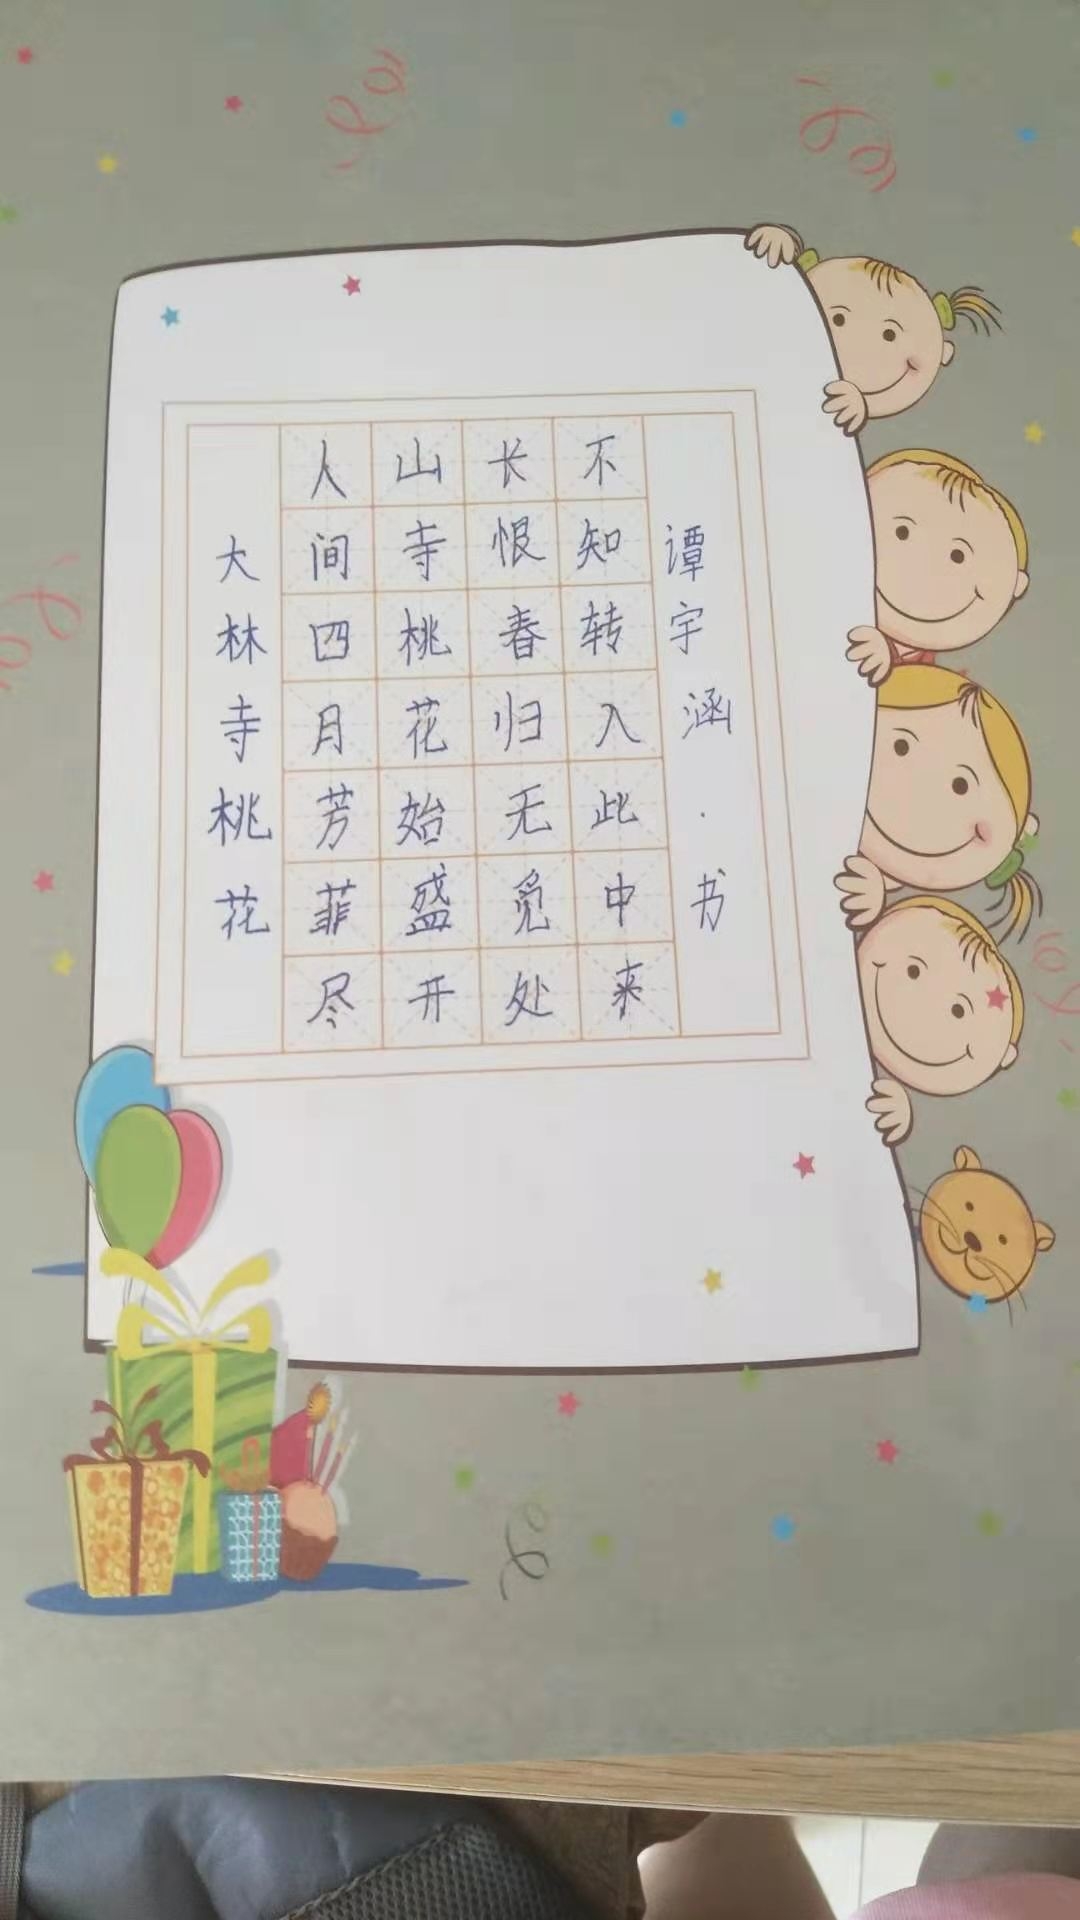 大林寺桃花
人间四月芳菲尽
山寺桃花始盛开
长恨春归无觅处
不知转入此中来
谭宇涵·书